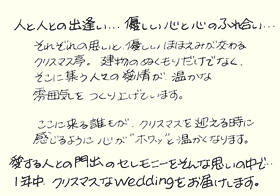 人と人との出逢い… 優しい心と心のふれ合い…
それぞれの思いと、優しいほほえみが交わる
クリスマス亭。建物のぬくもりだけでなく、
そこに集う人々の愛情が、温かな
雰囲気をつくり上げています。
ここに来る誰もが、クリスマスを迎える時に
感じるように心が"ホワッ"と温かくなります。
愛する人との門出のセレモニーをそんな思いの中で…
1年中、クリスマスなweddingをお届けします。